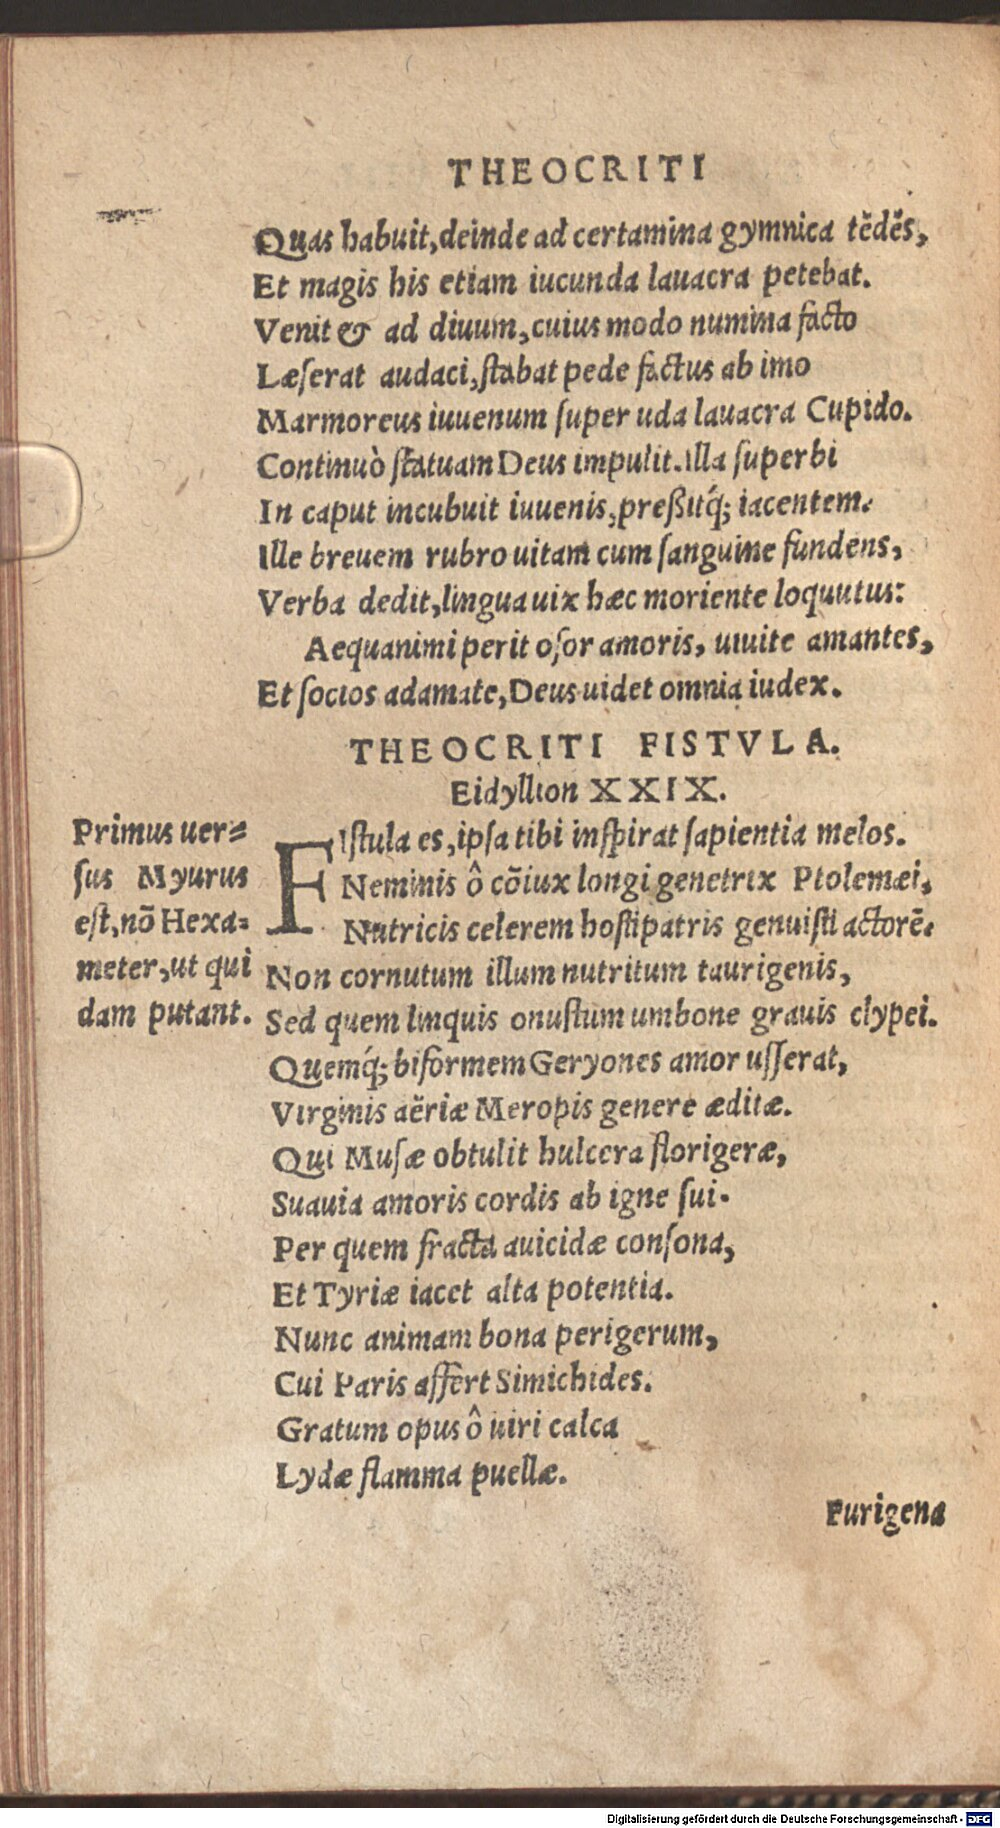 THEOCRITI
Quas habuit, deinde ad certamina gymnica tẽdẽs,
Et magis his etiam iucunda lauacra petebat.
Venit & ad diuum, cuius modo numina facto
Læſerat audaci, ſtabat pede factus ab imo
Marmoreus iuuenum ſuper uda lauacra Cupido.
Continuò ſtatuam Deus impulit. Illa ſuperbi
In caput incubuit iuuenis, preßitq́; iacentem.
Ille breuem rubro uitam cum ſanguine fundens,
Verba dedit, lingua uix hæc moriente loquutus:
Aequanimi perit oſor amoris, uiuite amantes,
Et ſocios adamate, Deus uidet omnia iudex.
THEOCRITI FISTVLA.
Eidyllion XXIX.
Primus uer=
ſus Myurus
eſt, nõ Hexa=
meter, ut qui
dam putant.
FIſtula es, ipſa tibi inſpirat ſapientia melos.
Neminis ô cõiux longi genetrix Ptolemæi,
Nutricis celerem hoſtipatris genuiſti actorẽ.
Non cornutum illum nutritum taurigenis,
Sed quem linquis onuſtum umbone grauis clypei.
Quemq́; biformem Geryones amor uſſerat,
Virginis aëriæ Meropis genere æditæ.
Qui Muſæ obtulit hulcera florigeræ,
Suauia amoris cordis ab igne ſui.
Per quem fracta auicidæ conſona,
Et Tyriæ iacet alta potentia.
Nunc animam bona perigerum,
Cui Paris affert Simichides.
Gratum opus ô uiri calca
Lydæ flamma puellæ.
Furigena
Digitalisierung gefördert durch die Deutsche Forschungsgemeinschaft - DFG